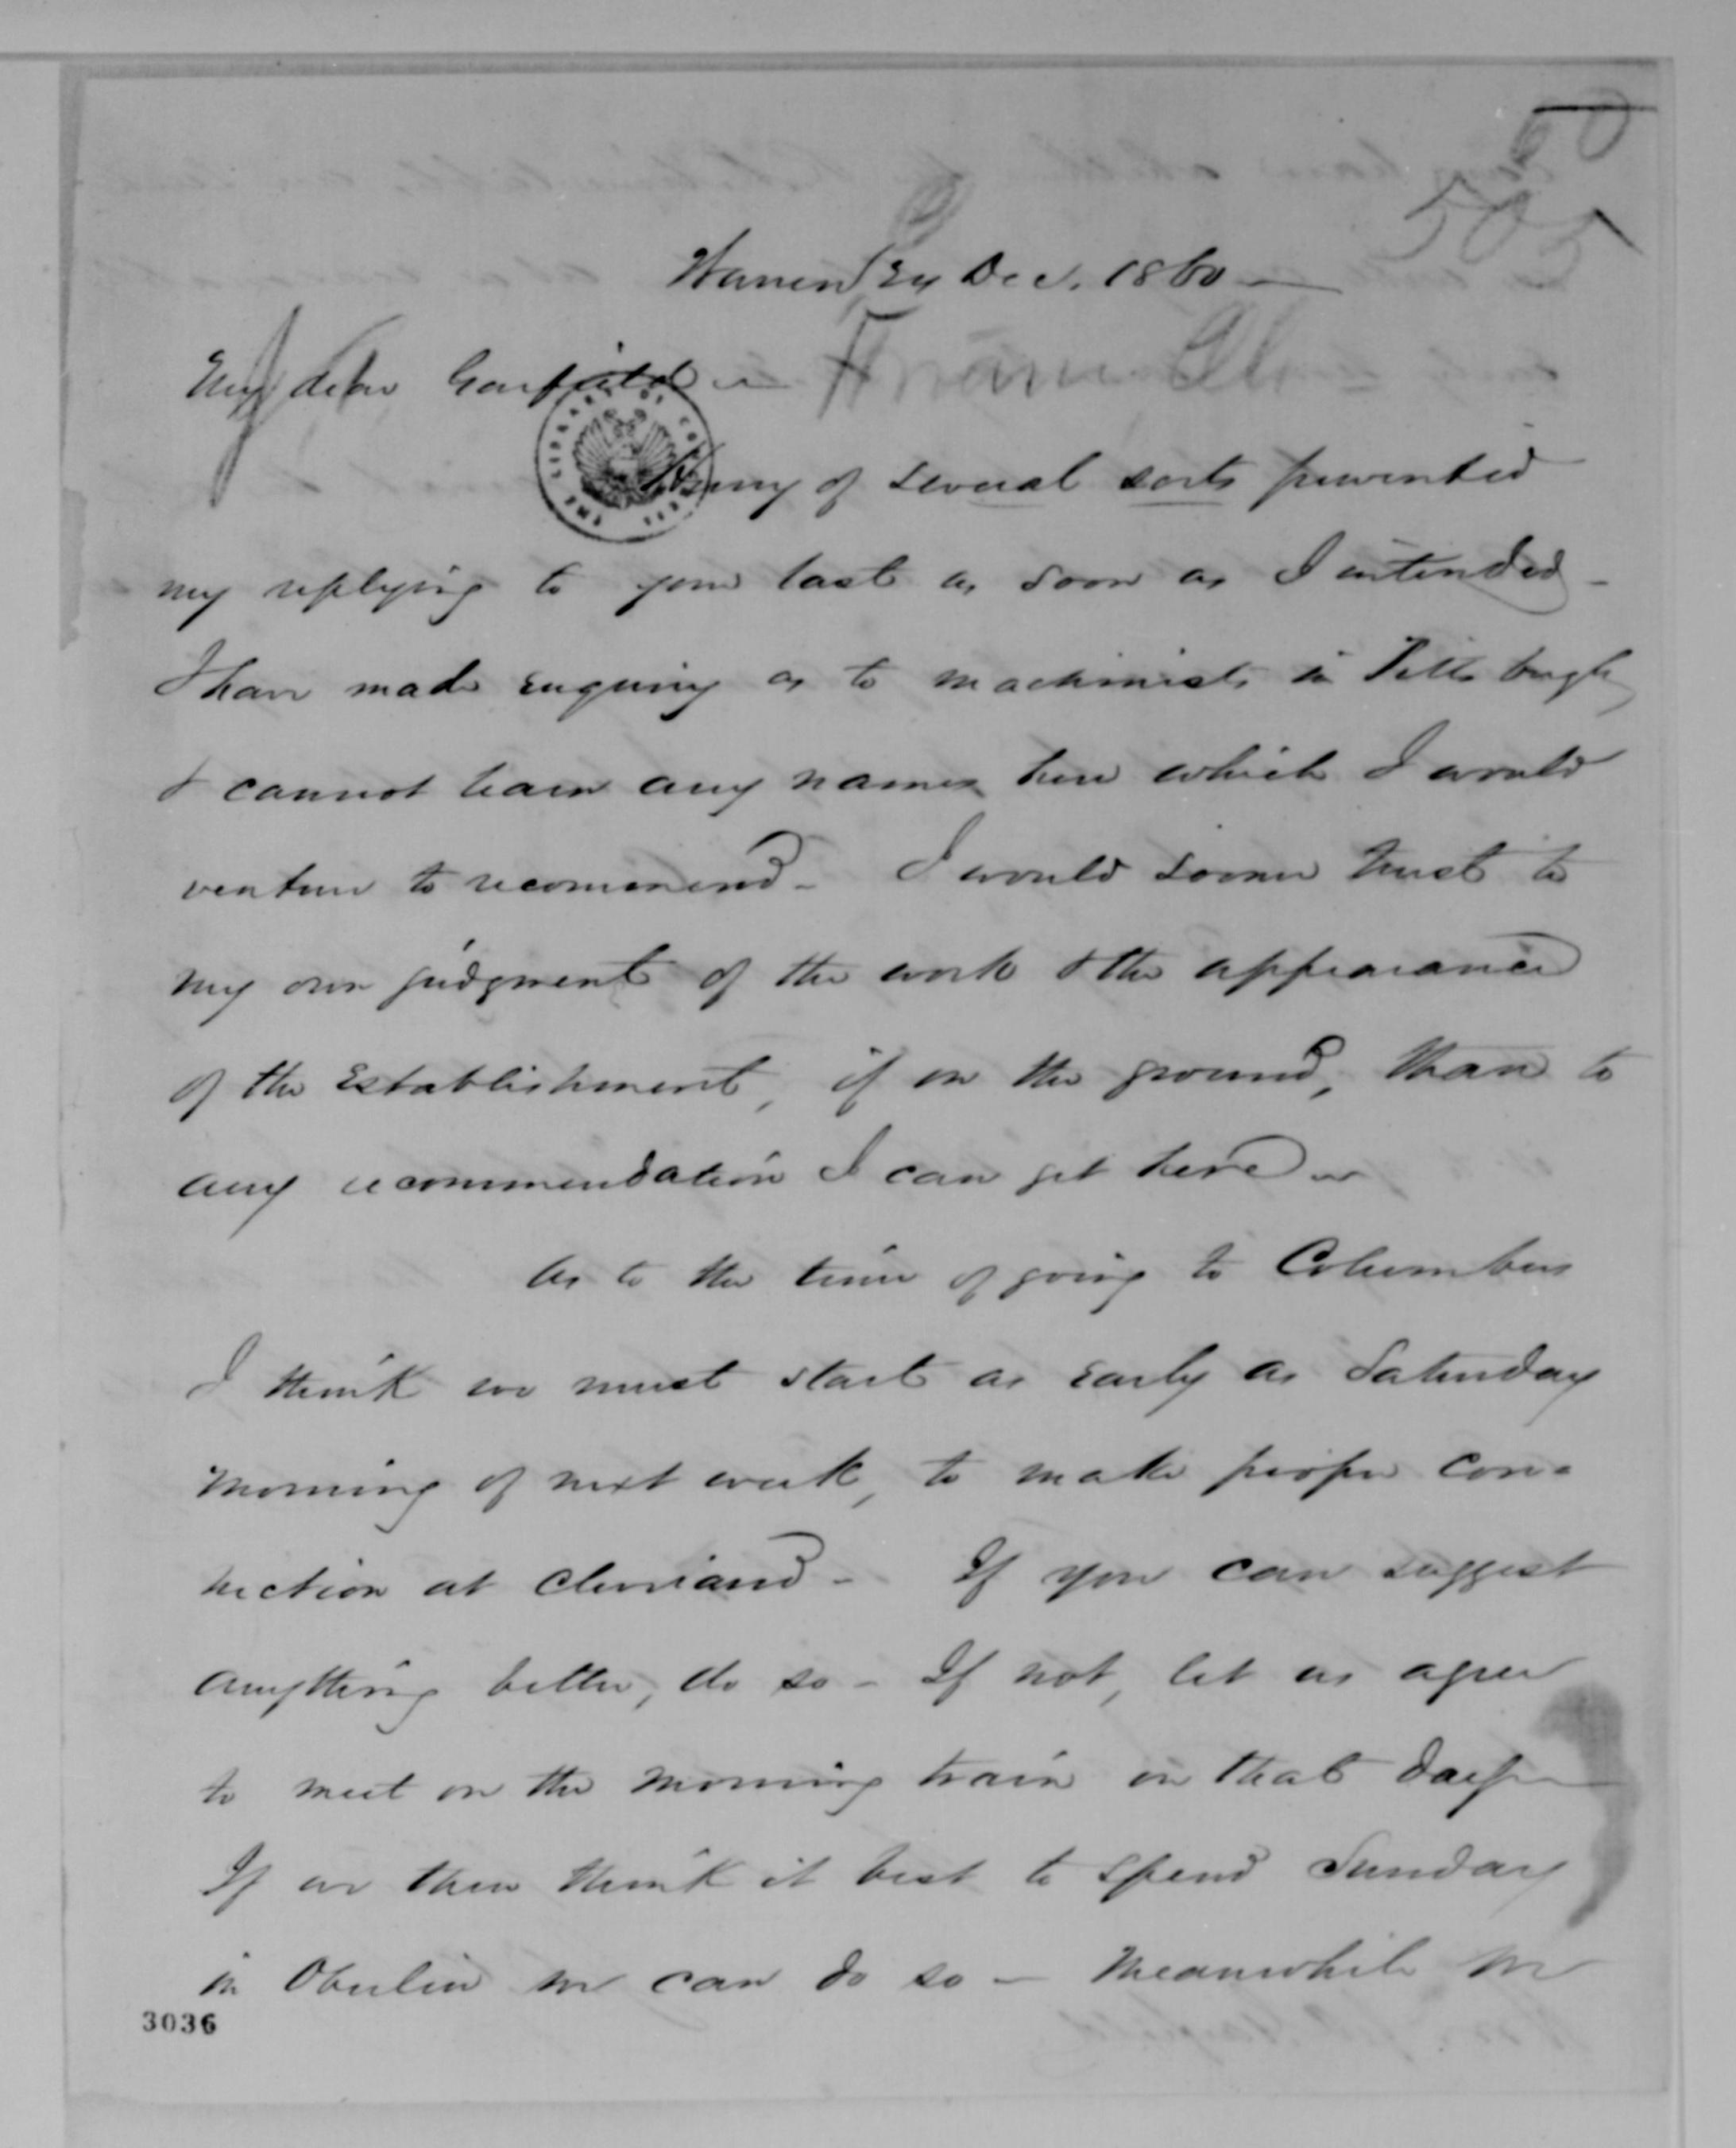 505
Warren 24 Dec. 1860 —
My dear Garfield —
of several sorts prevented
my replying to your last as soon as I intended –
I have made enquiry as to machinists in Pittsburgh,
& cannot learn any names here which I would
venture to recommend – I would sooner trust to
my own judgment of the work & the appearance
of the Establishment, if on the ground, than to
any recommendation I can get here –
As to the time of going to Columbus
I think we must start as early as Saturday
morning of next week, to make proper con-
nection at Cleveland – If you can suggest
anything better, do so – If not, let us agree
to meet on the morning train on that day –
If we then think it best to spend Sunday
in Oberlin we can do so – Meanwhile we
3036